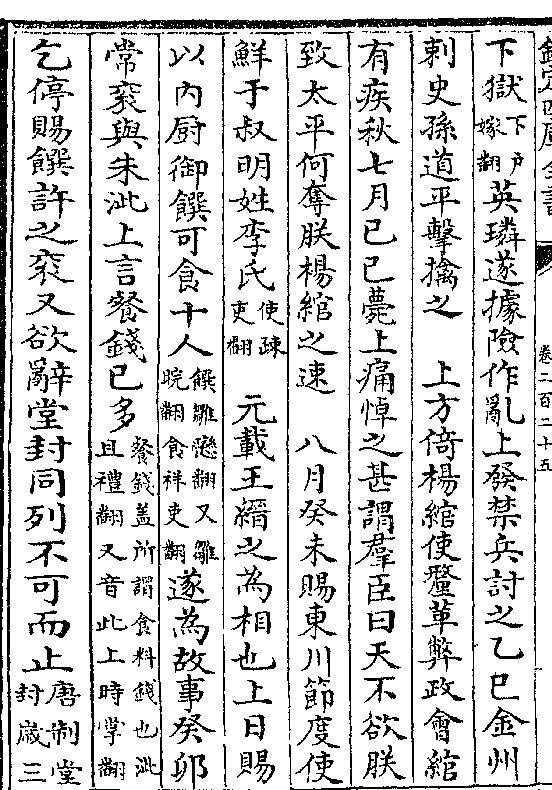 欽定四庫全書
卷二百二十五
下獄下户嫁翻英璘遂據險作亂上發禁兵討之乙巳金州
刺史孫道平擊擒之　上方倚楊綰使釐革弊政會綰
有疾秋七月己巳薨上痛悼之甚謂羣臣曰天不欲朕
致太平何奪朕楊綰之速　八月癸未賜東川節度使
鮮于叔明姓李氏使疎吏翻　元載王縉之為相也上日賜
以内厨御饌可食十人饌雛戀翻又雛晥翻食祥吏翻遂為故事癸卯
常衮與朱泚上言餐錢已多餐錢蓋所謂食料錢也泚且禮翻又音此上時掌翻
乞停賜饌許之衮又欲辭堂封同列不可而止唐制堂封歲三